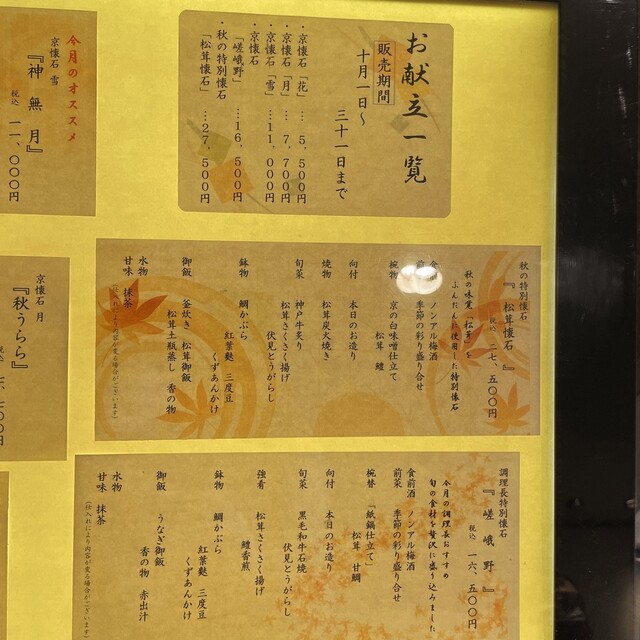 お献立一覧
販売期間
十月一日〜
三十一日まで
・京懐石「花」…5,500円
・京懐石「月」…7,700円
・京懐石「雪」…11,000円
・京懐石
「嵯峨野」…16,500円
・秋の特別懐石
「松茸懐石」…27,500円
今月のオススメ
京懐石 雪
『神無月』
税込 一一、〇〇〇円
秋の特別懐石
『松茸懐石』
税込 二七、五〇〇円
秋の味覚「松茸」を
ふんだんに使用した特別懐石
ノンアル梅酒
季節の彩り盛り合せ
椀物 京の白味噌仕立て
松茸 鱧
向付 本日のお造り
焼物 松茸炭火焼き
旬菜 神戸牛炙り
松茸さくさく揚げ
伏見とうがらし
鉢物 鯛かぶら
紅葉麩 三度豆
くずあんかけ
御飯 釜炊き 松茸御飯
松茸土瓶蒸し 香の物
水物
甘味 抹茶
(仕入れにより内容が変る場合がございます)
京懐石 月
『秋うらら』
調理長特別懐石
『嵯峨野』
税込 一六、五〇〇円
今月の調理長おすすめ
旬の食材を贅沢に盛り込みました
食前酒 ノンアル梅酒
前菜 季節の彩り盛り合せ
椀替 「紙鍋仕立て」
松茸 甘鯛
向付 本日のお造り
旬菜 黒毛和牛石焼
伏見とうがらし
強肴 松茸さくさく揚げ
鱧香煎
鉢物 鯛かぶら
紅葉麩 三度豆
くずあんかけ
御飯 うなぎ御飯
香の物 赤出汁
水物
甘味 抹茶
(仕入れにより内容が変る場合がございます)